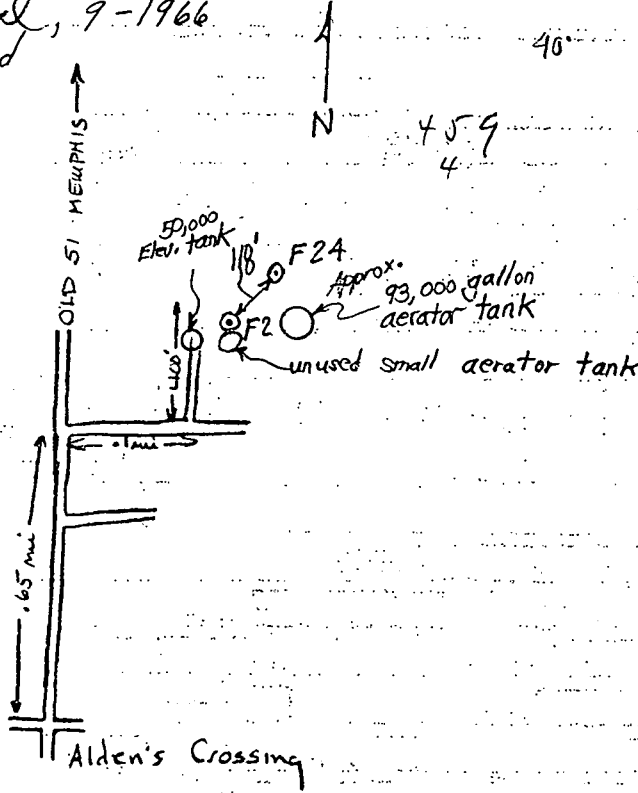 , 9-1966
40°
N
459
4
OLD 51 MEMPHIS
50,000
Elev. tank
118'
F24
Approx.
93,000 gallon
aerator tank
F2
unused small aerator tank
400'
.1 mi
.65 mi
Alden's Crossing